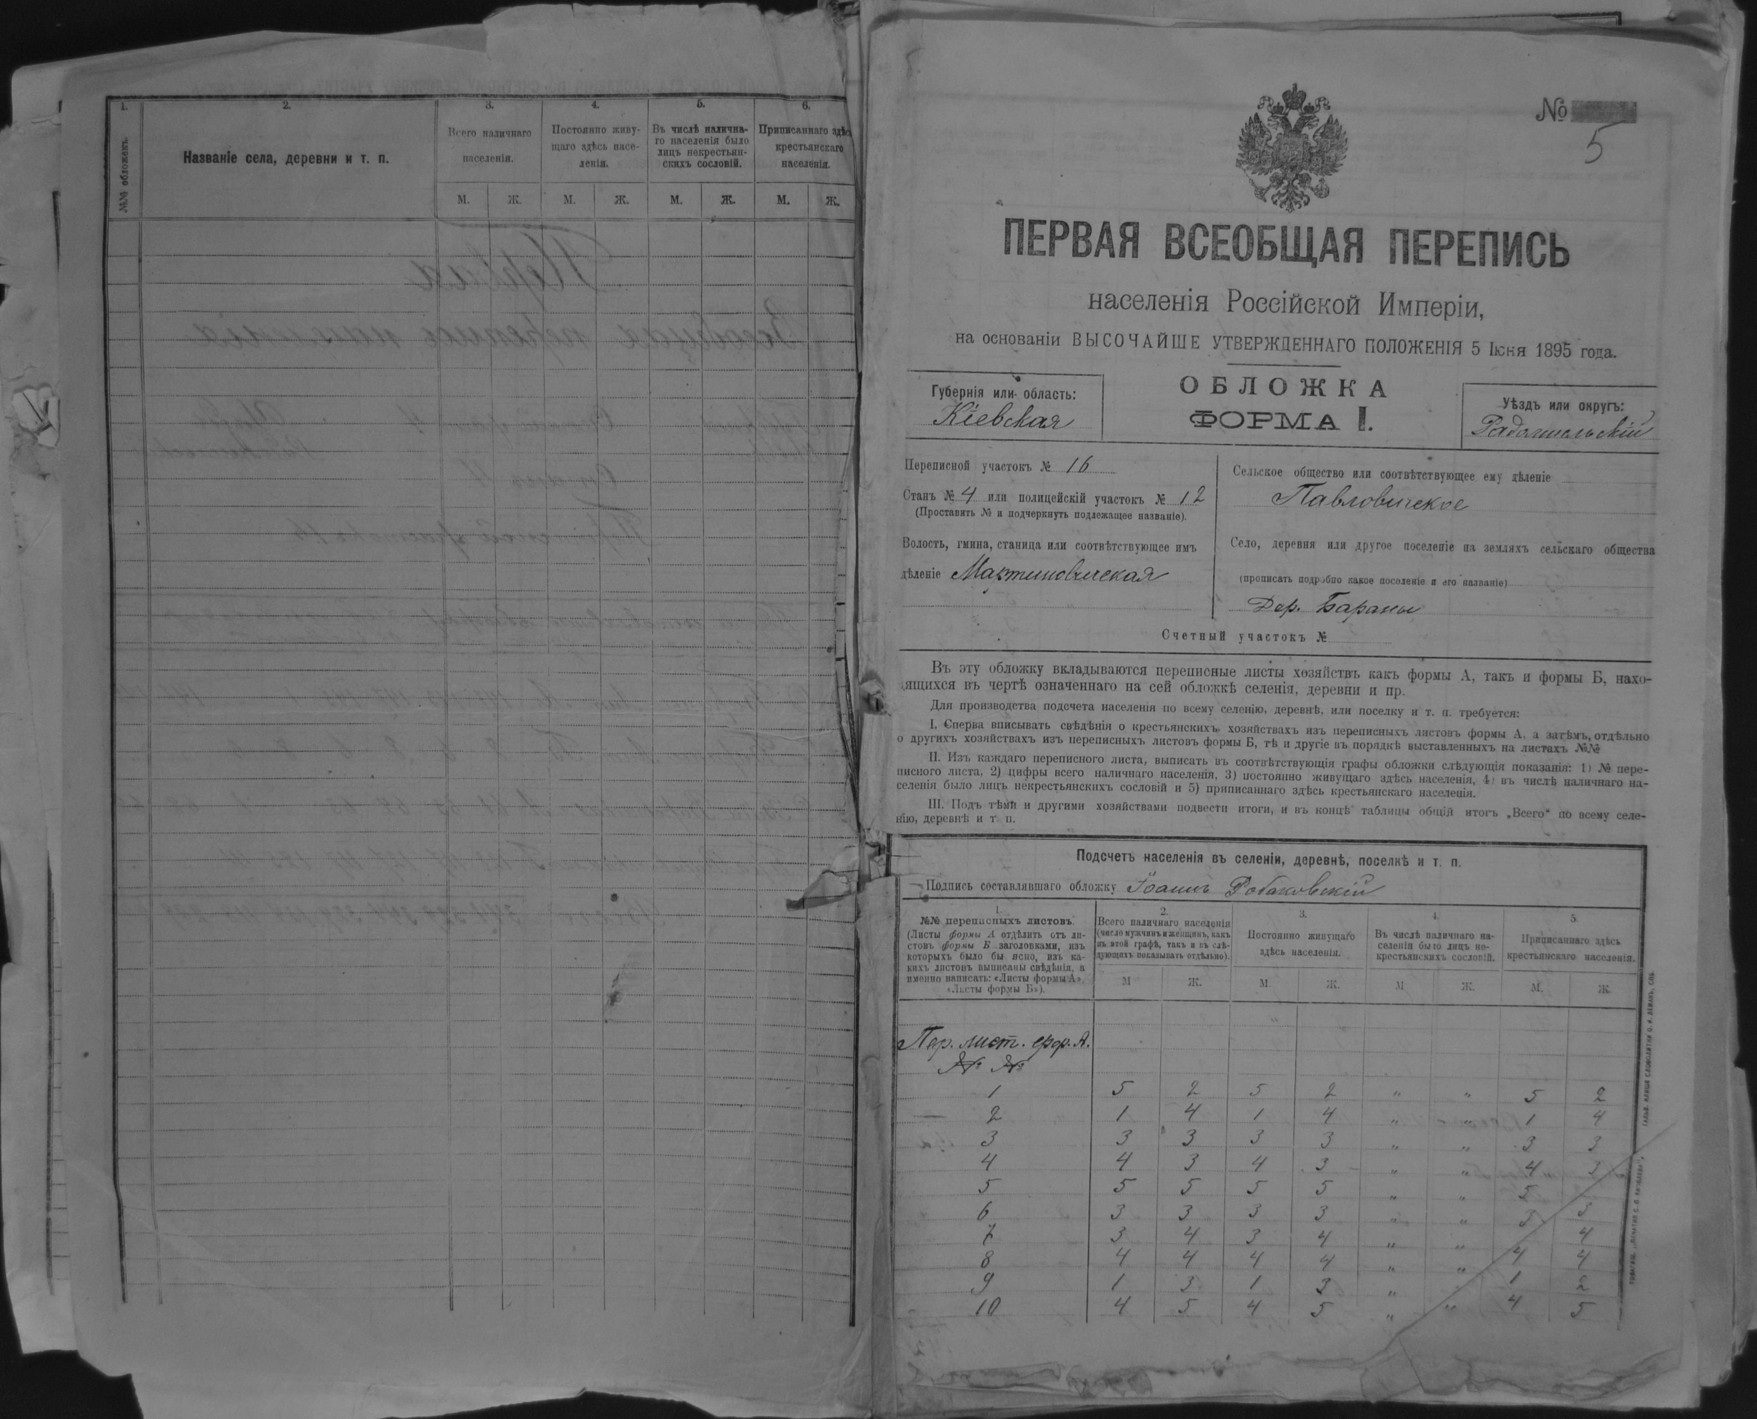 1.
2.
3.
4.
5.
6.
№№ обложекъ.
Названіе села, деревни и т. п.
Всего наличнаго
населенія.
Постоянно живу-
щаго здѣсь насе-
ленія.
Въ числѣ налична-
го населенія было
лицъ некрестьян-
скихъ сословій.
Приписаннаго здѣсь
крестьянскаго
населенія.
М. Ж. М. Ж. М. Ж. М. Ж.
№
5
ПЕРВАЯ ВСЕОБЩАЯ ПЕРЕПИСЬ
населенія Россійской Имперіи,
на основаніи ВЫСОЧАЙШЕ УТВЕРЖДЕННАГО ПОЛОЖЕНІЯ 5 Іюня 1895 года.
Губернія или область:
Кіевская
ОБЛОЖКА
ФОРМА I.
Уѣздъ или округъ:
Радомысльскій
Переписной участокъ № 16
Станъ № 4 или полицейскій участокъ № 12
(Проставить № и подчеркнуть подлежащее названіе).
Волость, гмина, станица или соотвѣтствующее имъ
дѣленіе Мартиновичская
Сельское общество или соотвѣтствующее ему дѣленіе
Павловичское
Село, деревня или другое поселеніе на земляхъ сельскаго общества
(прописать подробно какое поселеніе и его названіе)
Дер. Бараны
Счетный участокъ №
Въ эту обложку вкладываются переписные листы хозяйствъ какъ формы А, такъ и формы Б, нахо-
дящихся въ чертѣ означеннаго на сей обложкѣ селенія, деревни и пр.
Для производства подсчета населенія по всему селенію, деревнѣ, или поселку и т. п. требуется:
I. Сперва вписывать свѣдѣнія о крестьянскихъ хозяйствахъ изъ переписныхъ листовъ формы А. а затѣмъ, отдѣльно
о другихъ хозяйствахъ изъ переписныхъ листовъ формы Б, тѣ и другіе въ порядкѣ выставленныхъ на листахъ №№
II. Изъ каждаго переписного листа, выписать въ соотвѣтствующія графы обложки слѣдующія показанія: 1) № пере-
писного листа, 2) цифры всего наличнаго населенія, 3) постоянно живущаго здѣсь населенія, 4) въ числѣ наличнаго на-
селенія было лицъ некрестьянскихъ сословій и 5) приписаннаго здѣсь крестьянскаго населенія.
III. Подъ тѣми и другими хозяйствами подвести итоги, и въ концѣ таблицы общій итогъ „Всего" по всему селе-
нію, деревнѣ и т. п.
Подсчетъ населенія въ селеніи, деревнѣ, поселкѣ и т. п.
Подпись составлявшаго обложку Іоаннъ
1.
№№ переписныхъ листовъ
(Листы формы А отдѣлить отъ ли-
стовъ формы Б заголовками, изъ
которыхъ было бы ясно, изъ ка-
кихъ листовъ выписаны свѣдѣнія, а
именно написать: «Листы формы А»,
«Листы формы Б»).
2.
Всего наличнаго населенія
(число мужчинъ и женщинъ, какъ
въ этой графѣ, такъ и въ слѣ-
дующихъ показывать отдѣльно).
3.
Постоянно живущаго
здѣсь населенія.
4.
Въ числѣ наличнаго на-
селенія было лицъ не-
крестьянскихъ сословій.
5.
Приписаннаго здѣсь
крестьянскаго населенія.
М Ж. М. Ж. М Ж. М. Ж.
Пер. лист. фор. А.
№ №
1 5 2 5 2 „ „ 5 2
2 1 4 1 4 „ „ 1 4
3 3 3 3 3 „ „ 3 3
4 4 3 4 3 „ „ 4 3
5 5 5 5 5 „ „ 5
6 3 3 3 3 „ „ 3 3
7 3 4 3 4 „ „ 4
8 4 4 4 4 „ „ 4 4
9 1 3 1 3 „ 1 2
10 4 5 4 5 „ „ 4 5